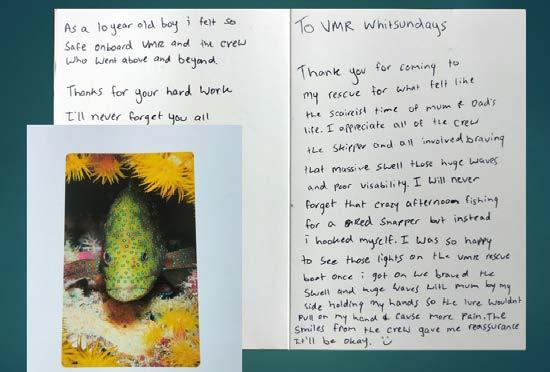 To VMR Whitsundays
Thank you for coming to
my rescue for what felt like
the scaireist time of mum & Dad's
life. I appreciate all of the crew
the skipper and all involved braving
that massive swell those huge waves
and poor visability. I will never
forget that crazy afternoon fishing
for a Red Snapper but instead
i hooked myself. I was so happy
to see those lights on the VMR rescue
boat once i got on we braved the
swell and huge waves with mum by my
side holding my hands so the lure wouldnt
pull on my hand & cause more pain. The
smiles from the crew gave me reassurance
it'll be okay.
As a 10 year old boy i felt so
safe onboard VMR and the crew
who went above and beyond.
Thanks for your hard work
I'll never forget you all